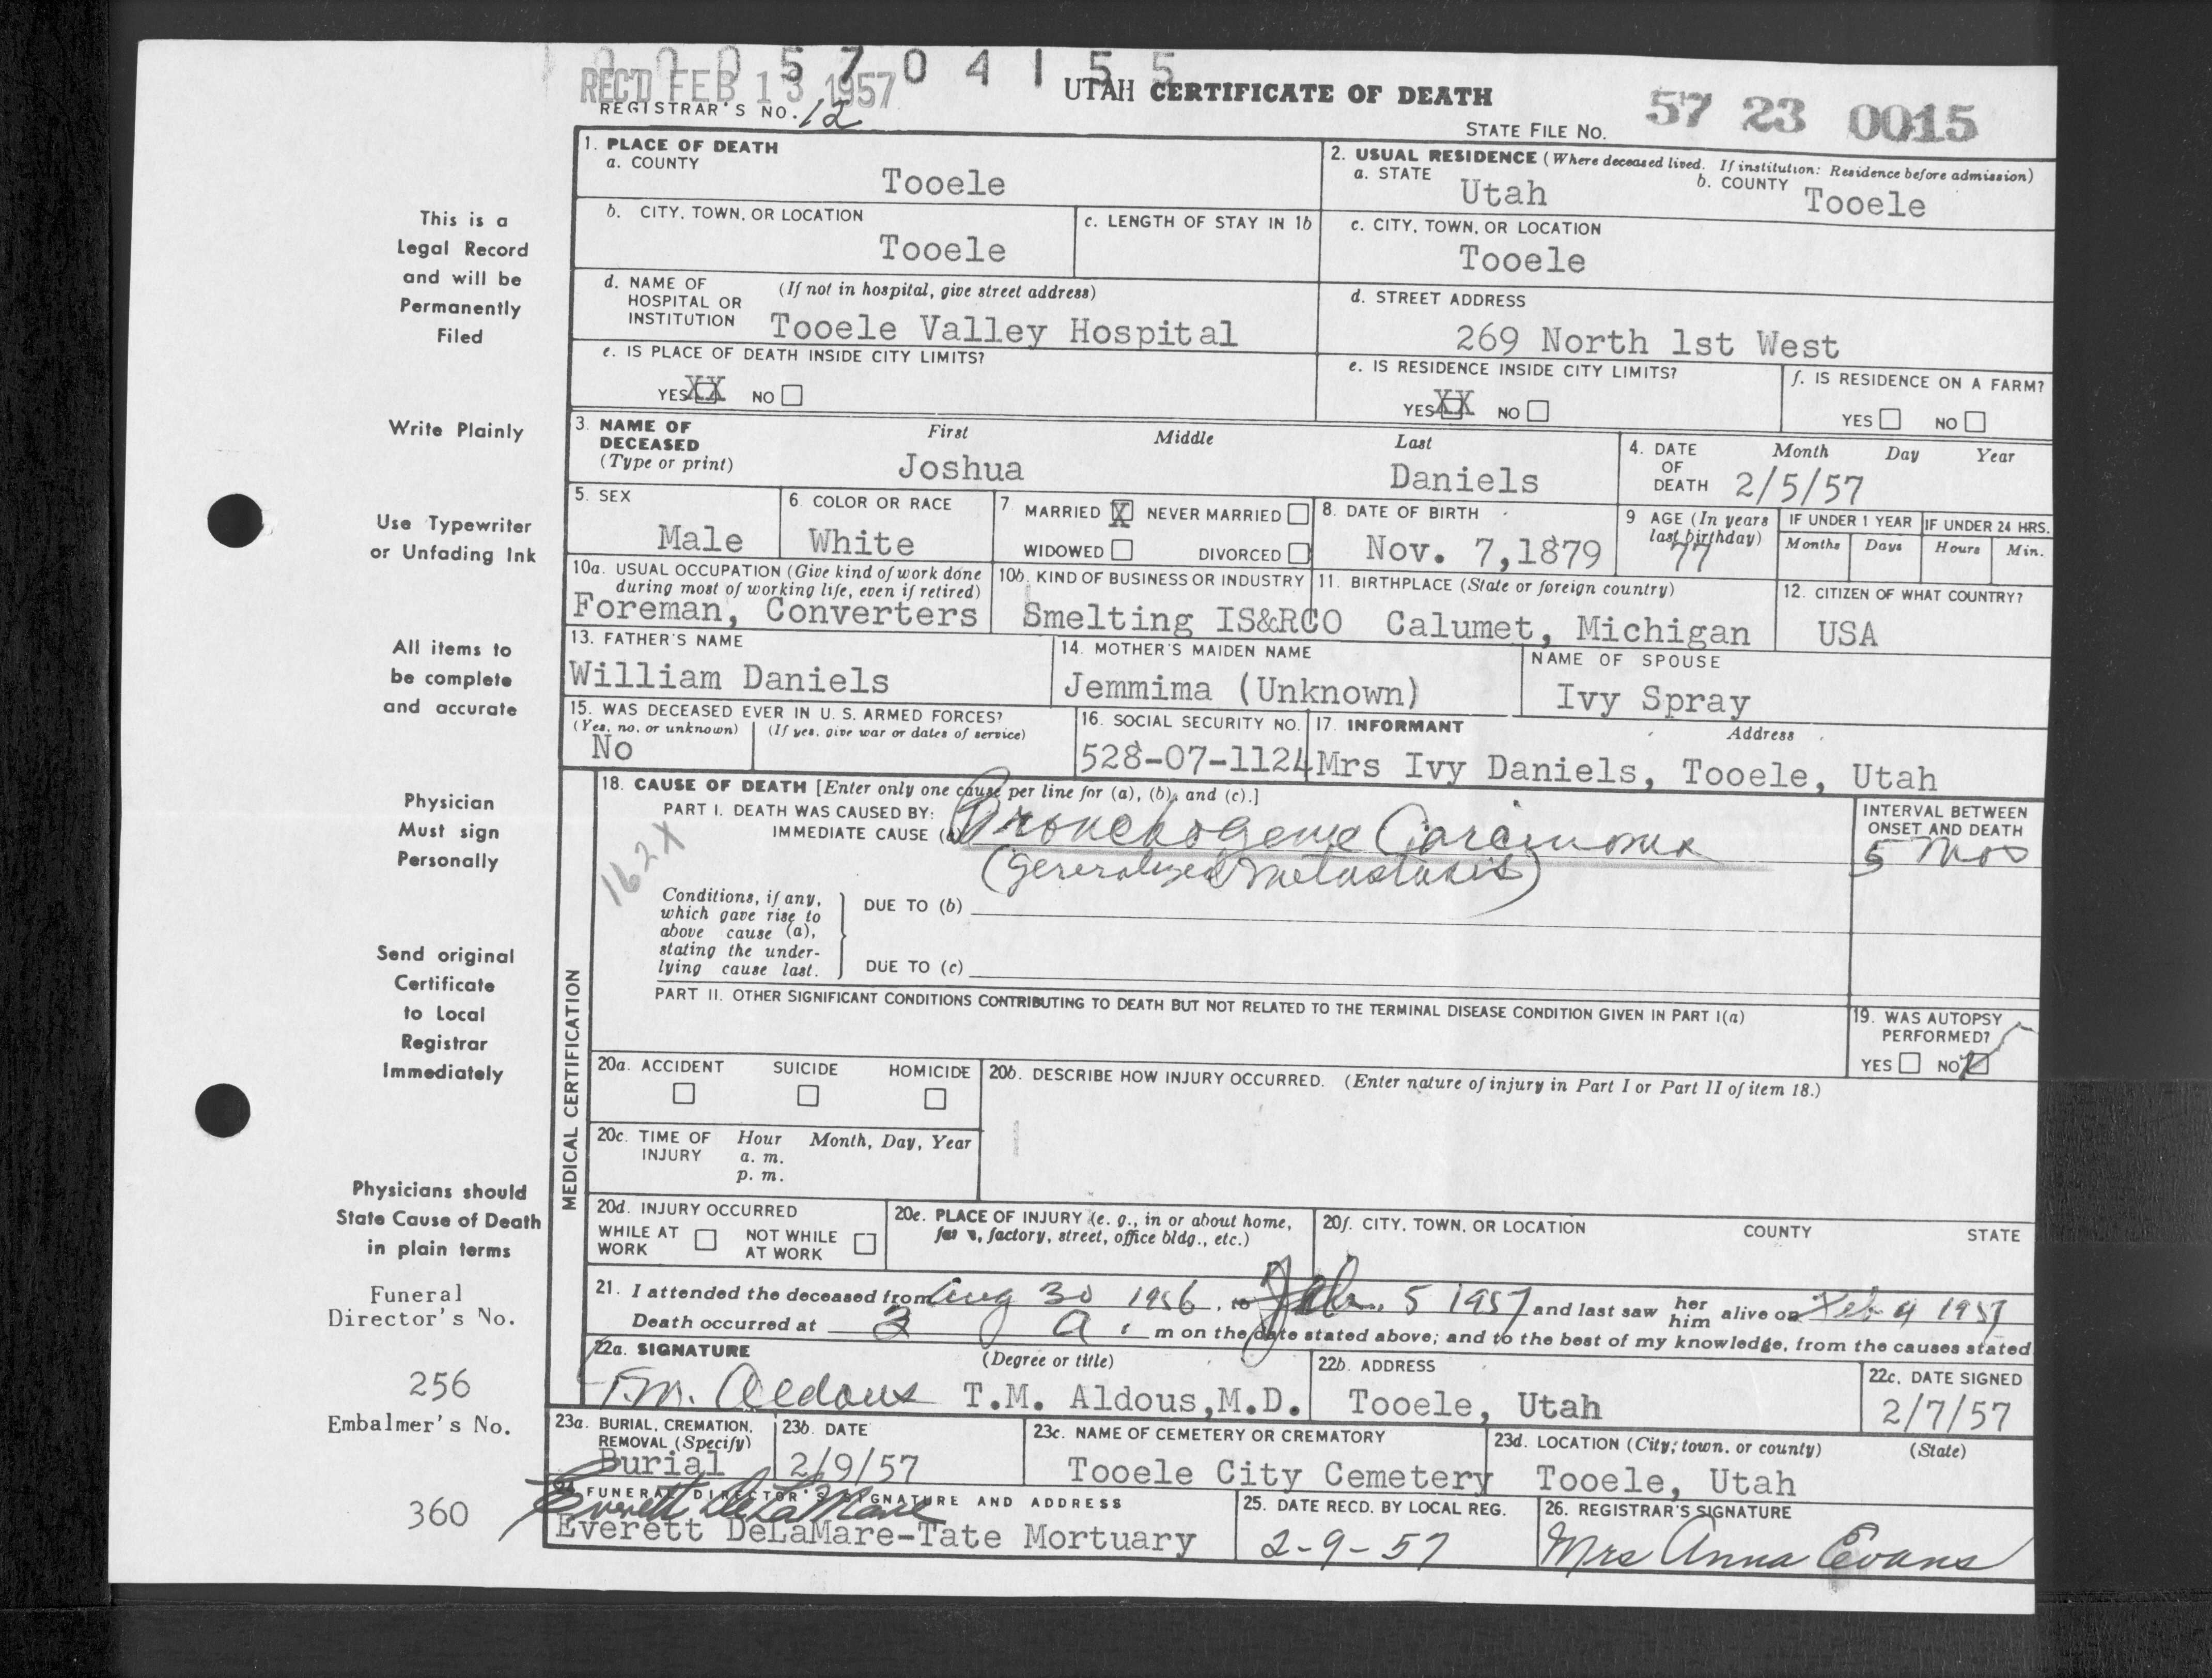 0005704155
REC'D FEB 13 1957
UTAH CERTIFICATE OF DEATH
REGISTRAR'S NO. 12
STATE FILE NO. 57 23 0015
This is a
Legal Record
and will be
Permanently
Filed
Write Plainly
Use Typewriter
or Unfading Ink
All items to
be complete
and accurate
Physician
Must sign
Personally
Send original
Certificate
to Local
Registrar
Immediately
Physicians should
State Cause of Death
in plain terms
Funeral
Director's No.
256
Embalmer's No.
360
1. PLACE OF DEATH
a. COUNTY
Tooele
2. USUAL RESIDENCE (Where deceased lived. If institution: Residence before admission)
a. STATE Utah b. COUNTY Tooele
b. CITY, TOWN, OR LOCATION
Tooele
c. LENGTH OF STAY IN 1b
c. CITY, TOWN, OR LOCATION
Tooele
d. NAME OF HOSPITAL OR INSTITUTION (If not in hospital, give street address)
Tooele Valley Hospital
d. STREET ADDRESS
269 North 1st West
e. IS PLACE OF DEATH INSIDE CITY LIMITS?
YES XX NO
e. IS RESIDENCE INSIDE CITY LIMITS?
YES XX NO
f. IS RESIDENCE ON A FARM?
YES NO
3. NAME OF DECEASED (Type or print)
First Middle Last
Joshua Daniels
4. DATE OF DEATH Month Day Year
2/5/57
5. SEX
Male
6. COLOR OR RACE
White
7 MARRIED X NEVER MARRIED
WIDOWED DIVORCED
8. DATE OF BIRTH
Nov. 7,1879
9 AGE (In years last birthday)
77
IF UNDER 1 YEAR IF UNDER 24 HRS.
Months Days Hours Min.
10a. USUAL OCCUPATION (Give kind of work done during most of working life, even if retired)
Foreman, Converters
10b. KIND OF BUSINESS OR INDUSTRY
Smelting IS&RCO
11. BIRTHPLACE (State or foreign country)
Calumet, Michigan
12. CITIZEN OF WHAT COUNTRY?
USA
13. FATHER'S NAME
William Daniels
14. MOTHER'S MAIDEN NAME
Jemmima (Unknown)
NAME OF SPOUSE
Ivy Spray
15. WAS DECEASED EVER IN U. S. ARMED FORCES?
(Yes, no, or unknown) (If yes, give war or dates of service)
No
16. SOCIAL SECURITY NO.
528-07-1124
17. INFORMANT Address
Mrs Ivy Daniels, Tooele, Utah
MEDICAL CERTIFICATION
18. CAUSE OF DEATH [Enter only one cause per line for (a), (b), and (c).]
PART I. DEATH WAS CAUSED BY:
IMMEDIATE CAUSE (a) Bronchogenic Carcinoma
(generalized metastasis)
162X
INTERVAL BETWEEN ONSET AND DEATH
5 Mos
Conditions, if any, which gave rise to above cause (a), stating the underlying cause last.
DUE TO (b)
DUE TO (c)
PART II. OTHER SIGNIFICANT CONDITIONS CONTRIBUTING TO DEATH BUT NOT RELATED TO THE TERMINAL DISEASE CONDITION GIVEN IN PART I(a)
19. WAS AUTOPSY PERFORMED?
YES NO
20a. ACCIDENT SUICIDE HOMICIDE
20b. DESCRIBE HOW INJURY OCCURRED. (Enter nature of injury in Part I or Part II of item 18.)
20c. TIME OF INJURY Hour Month, Day, Year
a. m.
p. m.
20d. INJURY OCCURRED
WHILE AT WORK NOT WHILE AT WORK
20e. PLACE OF INJURY (e. g., in or about home, farm, factory, street, office bldg., etc.)
20f. CITY, TOWN, OR LOCATION COUNTY STATE
21. I attended the deceased from Aug 30 1956, to Feb. 5 1957 and last saw her him alive on Feb 4 1957
Death occurred at 3 a. m on the date stated above; and to the best of my knowledge, from the causes stated
22a. SIGNATURE (Degree or title)
T.M. Aldous T.M. Aldous,M.D.
22b. ADDRESS
Tooele, Utah
22c. DATE SIGNED
2/7/57
23a. BURIAL, CREMATION, REMOVAL (Specify)
Burial
23b. DATE
2/9/57
23c. NAME OF CEMETERY OR CREMATORY
Tooele City Cemetery
23d. LOCATION (City, town, or county) (State)
Tooele, Utah
24 FUNERAL DIRECTOR'S SIGNATURE AND ADDRESS
Everett DeLaMare
Everett DeLaMare-Tate Mortuary
25. DATE RECD. BY LOCAL REG.
2-9-57
26. REGISTRAR'S SIGNATURE
Mrs Anna Evans